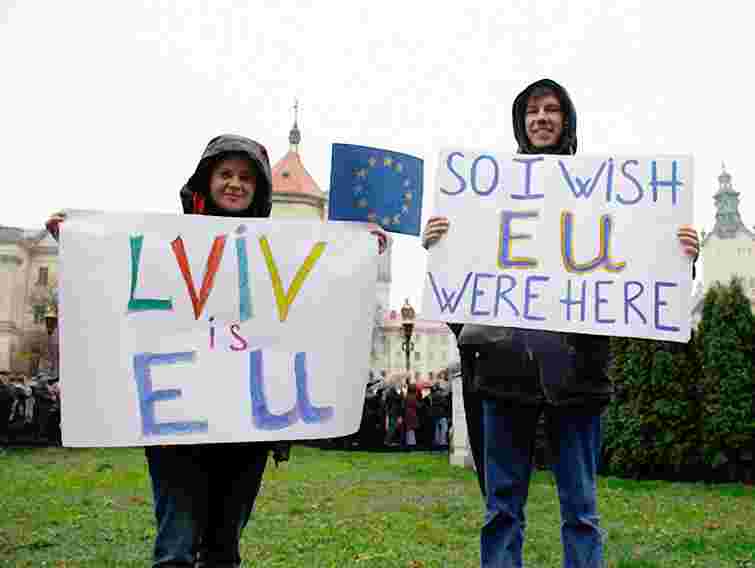 LViV
is
EU
SO I WiSH
EU
WERE HERE